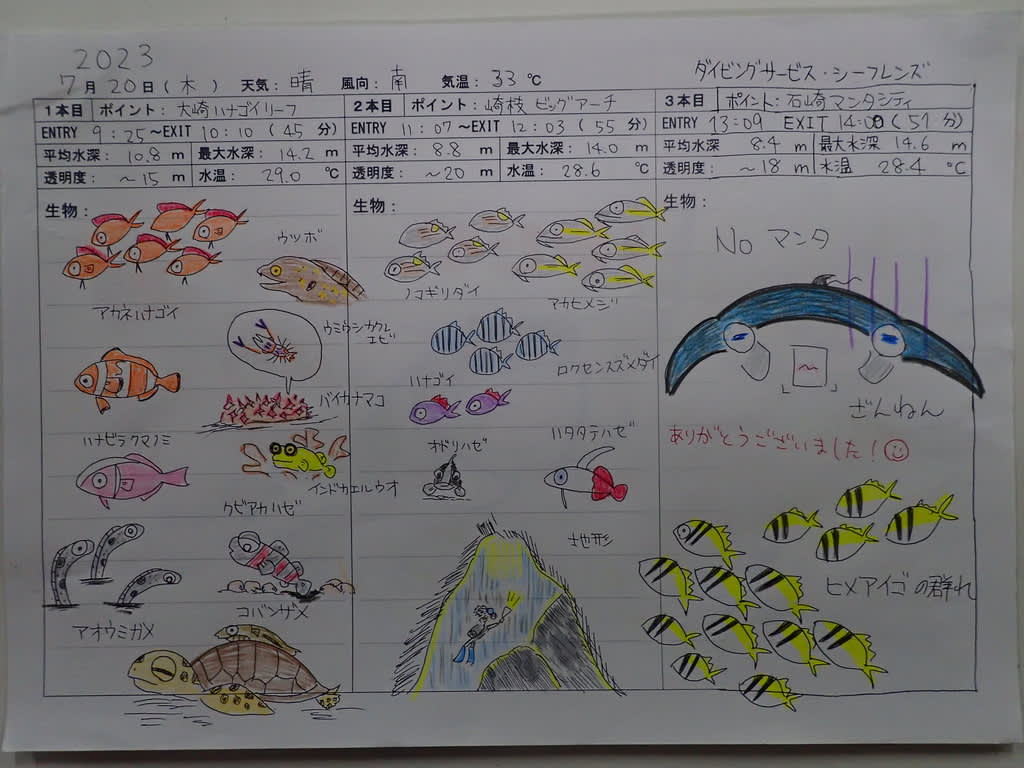 2023
7月20日(木) 天気:晴 風向:南 気温:33℃
ダイビングサービス・シーフレンズ
1本目 ポイント:大崎ハナゴイリーフ
ENTRY 9:25~EXIT 10:10(45分)
平均水深:10.8 m 最大水深:14.2 m
透明度:~15 m 水温:29.0 ℃
生物:
ウツボ
アカネハナゴイ
ウミウシカクレ
エビ
バイカナマコ
ハナビラクマノミ
インドカエルウオ
クビアカハゼ
コバンザメ
アオウミガメ
2本目 ポイント:崎枝 ビッグアーチ
ENTRY 11:07~EXIT 12:03(55分)
平均水深:8.8 m 最大水深:14.0 m
透明度:~20 m 水温:28.6 ℃
生物:
ノコギリダイ
アカヒメジ
ロクセンスズメダイ
ハナゴイ
オドリハゼ
ハタタテハゼ
地形
3本目 ポイント:石崎マンタシティ
ENTRY 13:09 EXIT 14:00(51分)
平均水深 8.4 m 最大水深 14.6 m
透明度:~18 m 水温 28.4 ℃
生物:
No マンタ
ざんねん
ありがとうございました!
ヒメアイゴの群れ